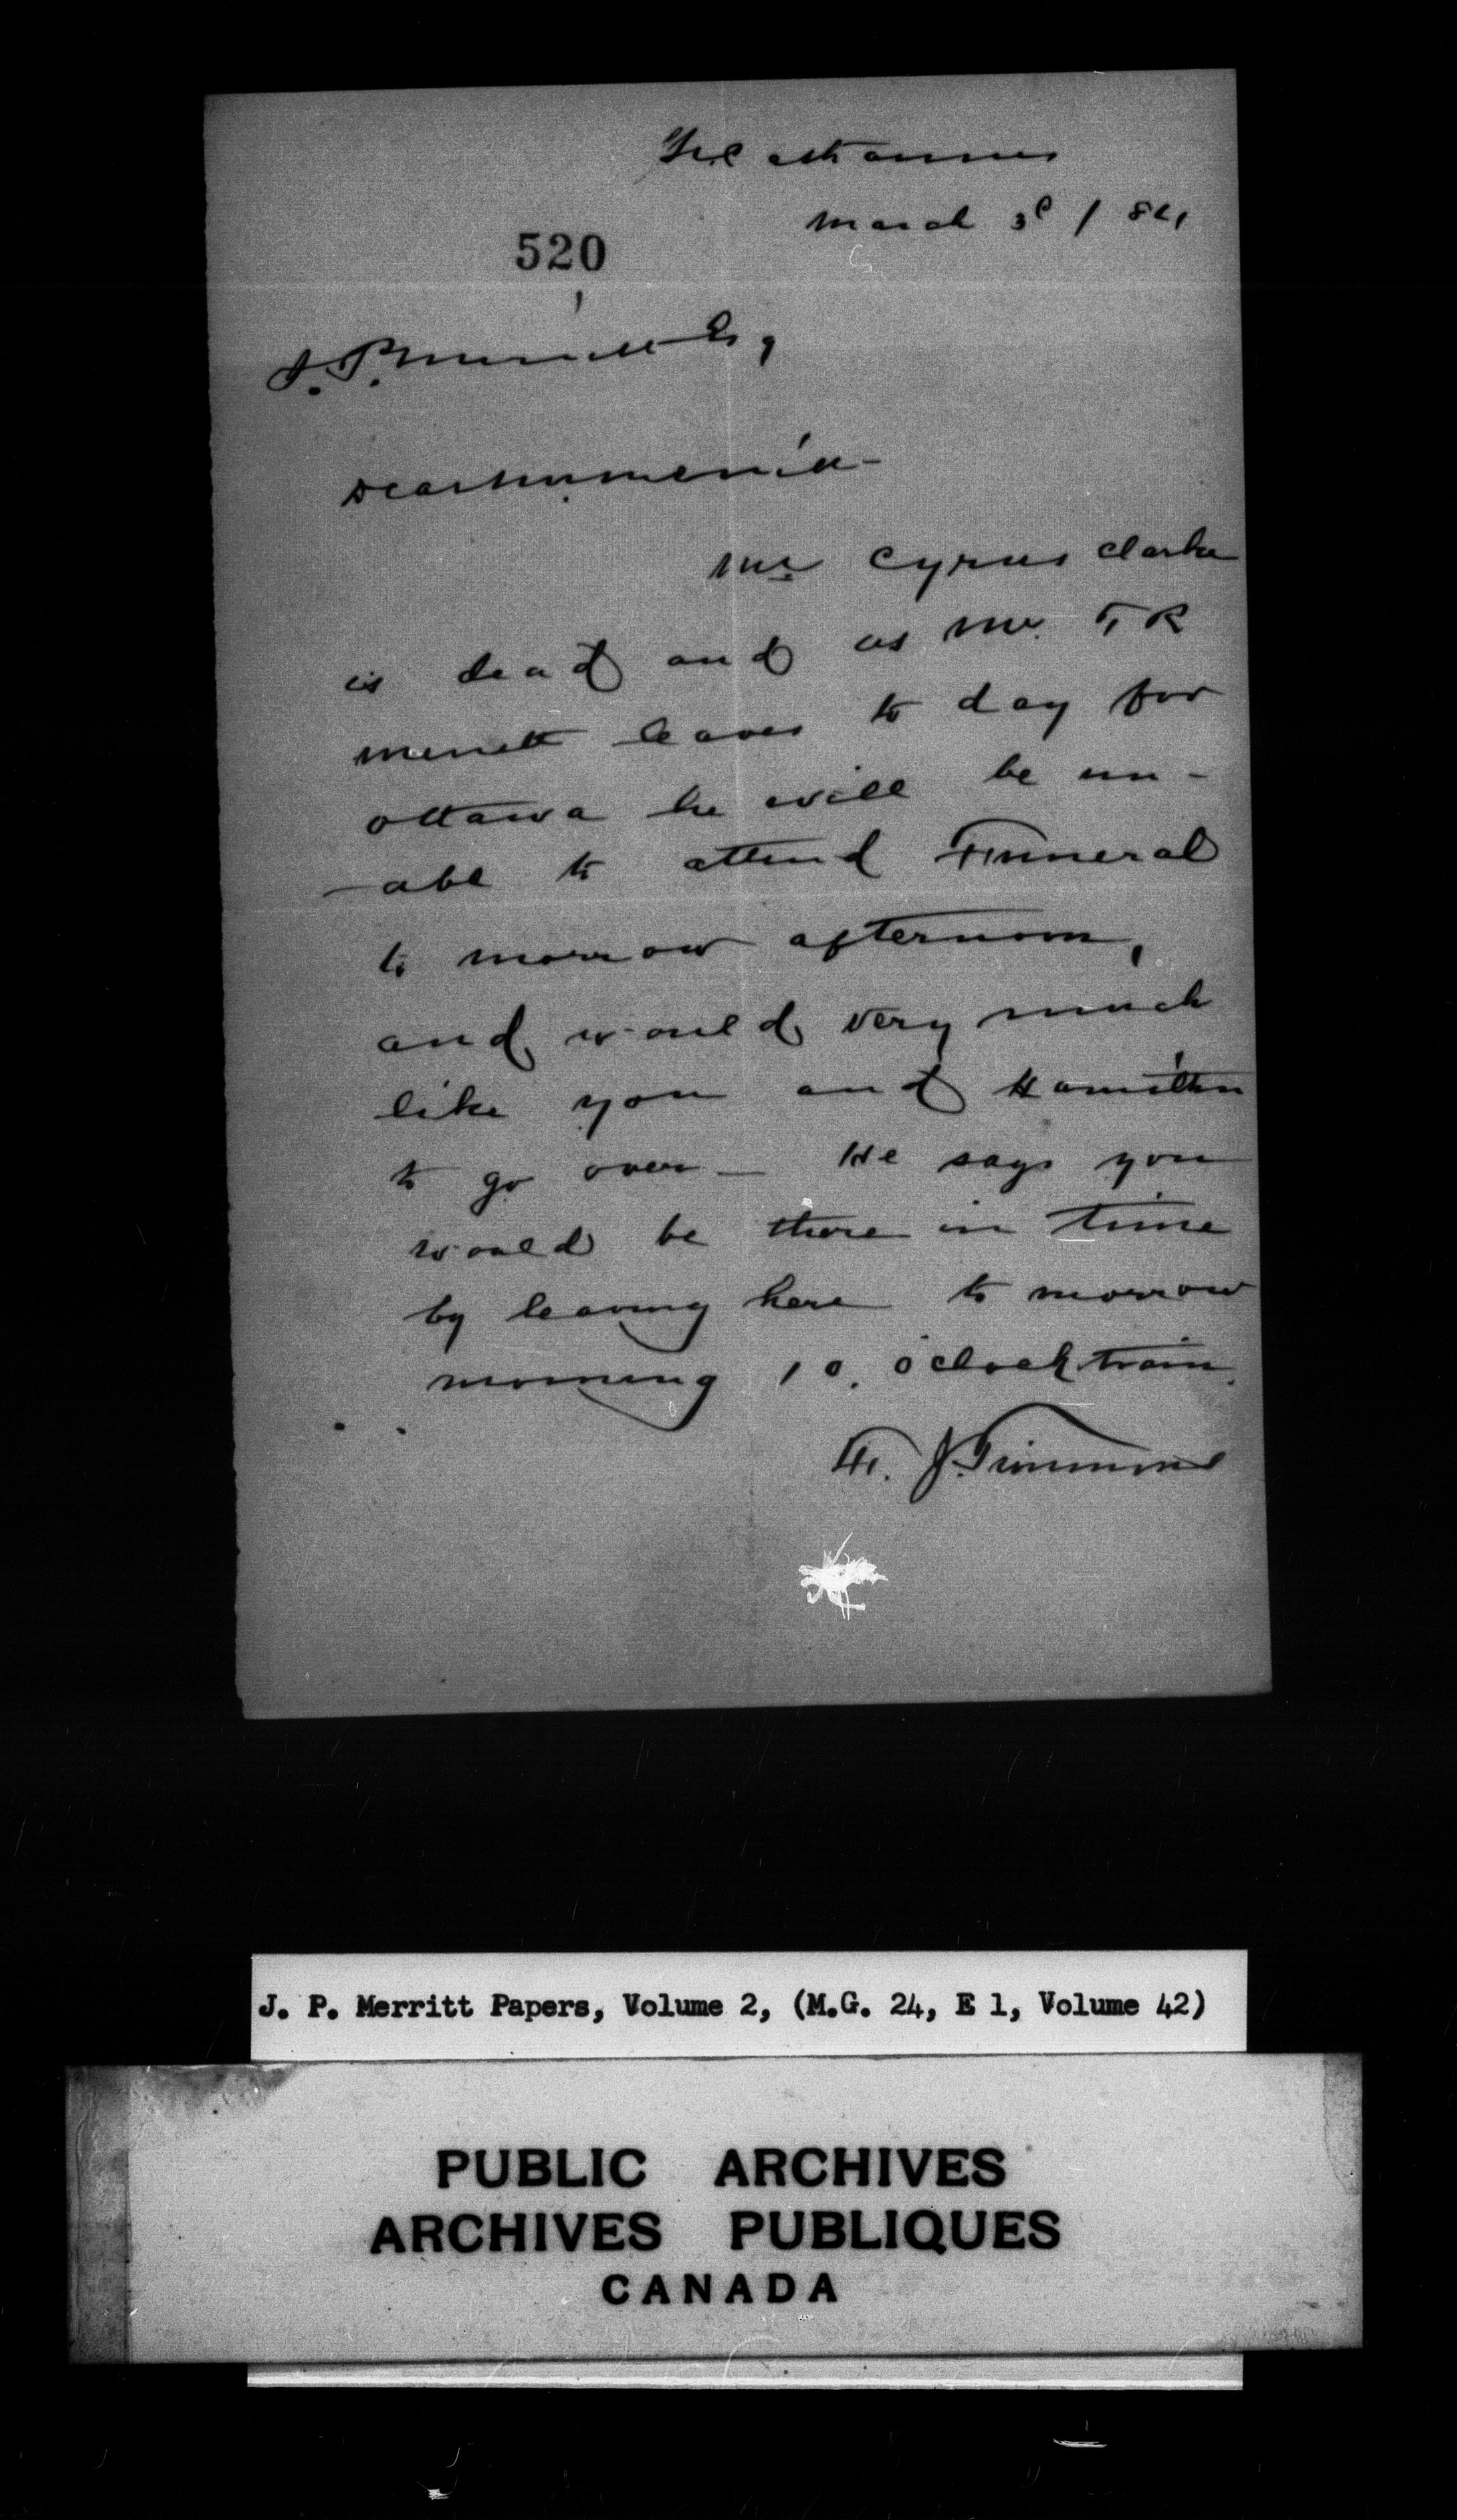 St. Catharines
March 3d / 84
520
J. P. Merritt Esq
Dear Mr Merritt –
Mr. Cyrus Clarke
is dead and as Mr. T R
Merritt leaves to day for
Ottawa he will be un-
-able to attend Funneral
to morrow afternoon,
and would very much
like you and Hamilton
to go over – He says you
would be there in time
by leaving here to morrow
morning 10. o'clock train.
J. P. Merritt Papers, Volume 2, (M.G. 24, E 1, Volume 42)
PUBLIC ARCHIVES
ARCHIVES PUBLIQUES
CANADA